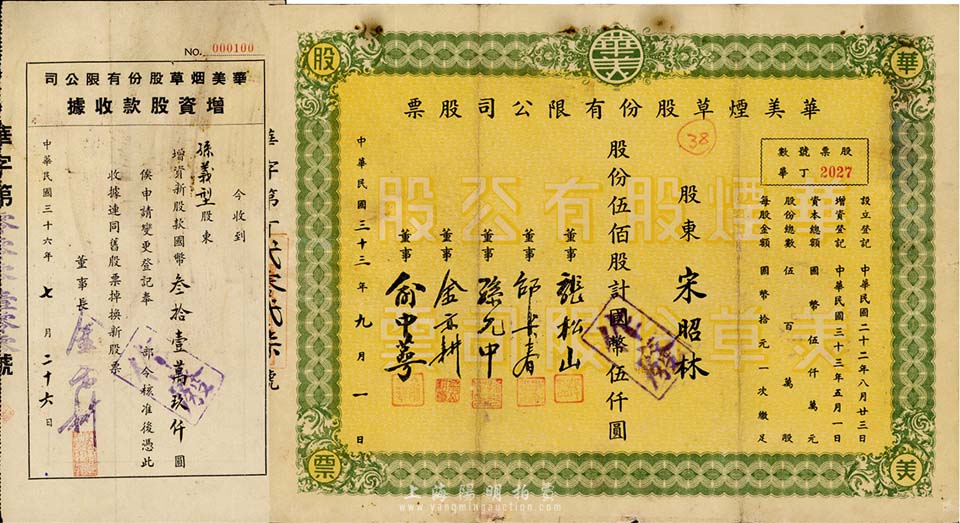 NO. 000100
華美烟草股份有限公司
增資股款收據
今收到
孫義型股東
增資新股款國幣叁拾壹萬玖仟圓
俟申請變更登記奉 部令核准後憑此
收據連同舊股票掉換新股票
董事長
中華民國三十六年七月二十六日
華字第
號
華字第
號
股
華
票
美
華美
華美煙草股份有限公司股票
股票號數
華丁 2027
設立登記 中華民國二十二年八月廿三日
增資登記 中華民國三十三年五月一日
資本總額 國幣伍仟萬元
股份總數 伍百萬股
每股金額 國幣拾元一次繳足
38
股東 宋昭林
股份伍佰股計國幣伍仟圓
董事 張松山
董事
董事 孫元中
董事 金亦耕
董事 俞中萼
中華民國三十三年九月一日
華煙股有公股
美草份限司票
上海陽明拍賣
www.yangmingauction.com